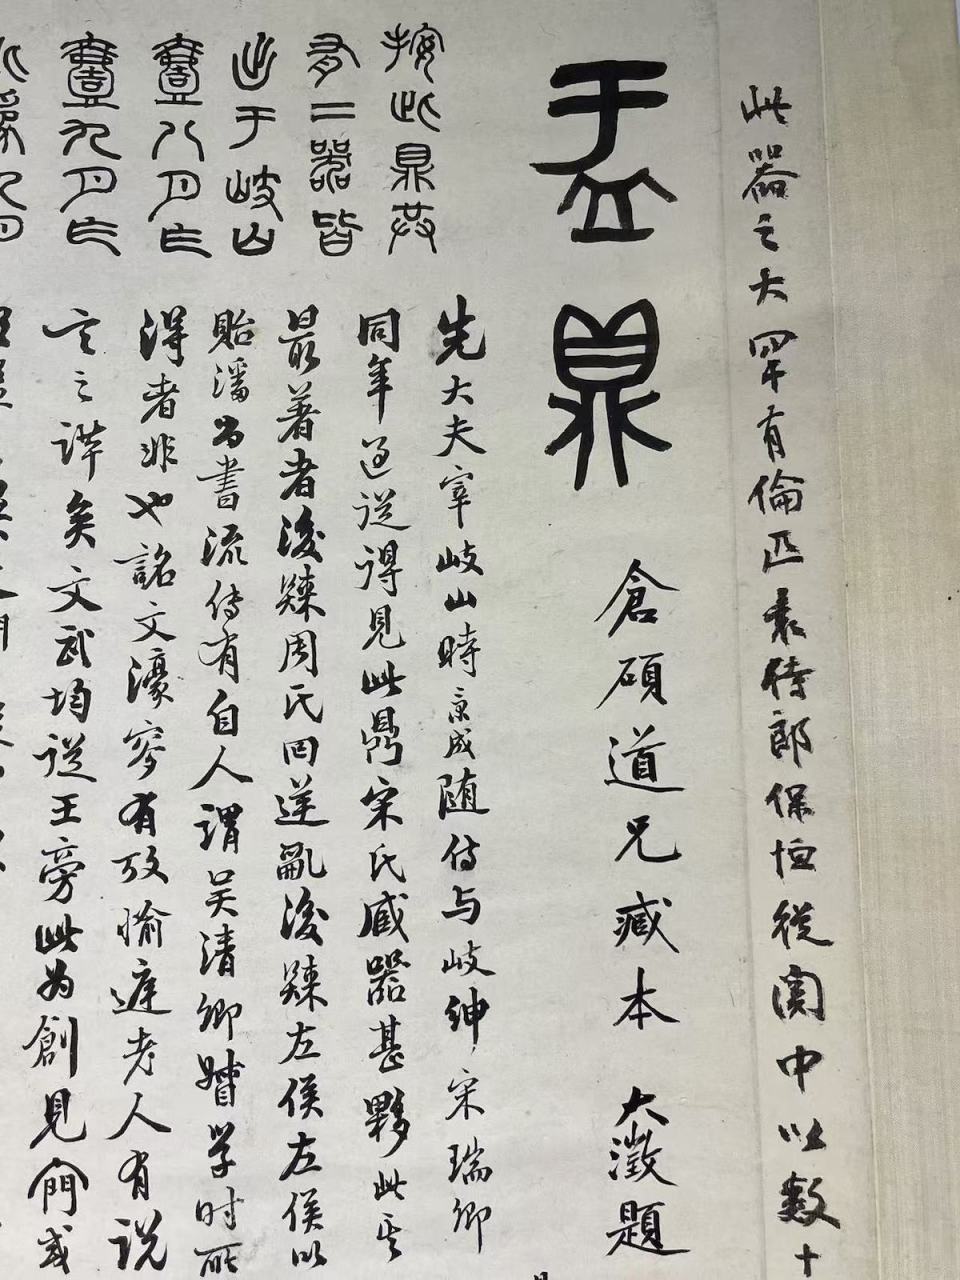 此器之大罕有倫匹袁侍郎保恒從關中以數十
盂鼎
倉碩道兄臧本 大澂題
按此鼎共
有二器皆
出于岐山
先大夫宰岐山時京成随侍与岐紳宋瑞卿
同年過從得見此鼎宋氏臧器甚夥此其
最著者後歸周氏回逆亂後歸左侯左侯以
貽潘尚書流傳有自人謂吴清卿督学时所
得者非也銘文 有攷愉庭老人有説
言之詳矣文武均從王旁此为創見間或